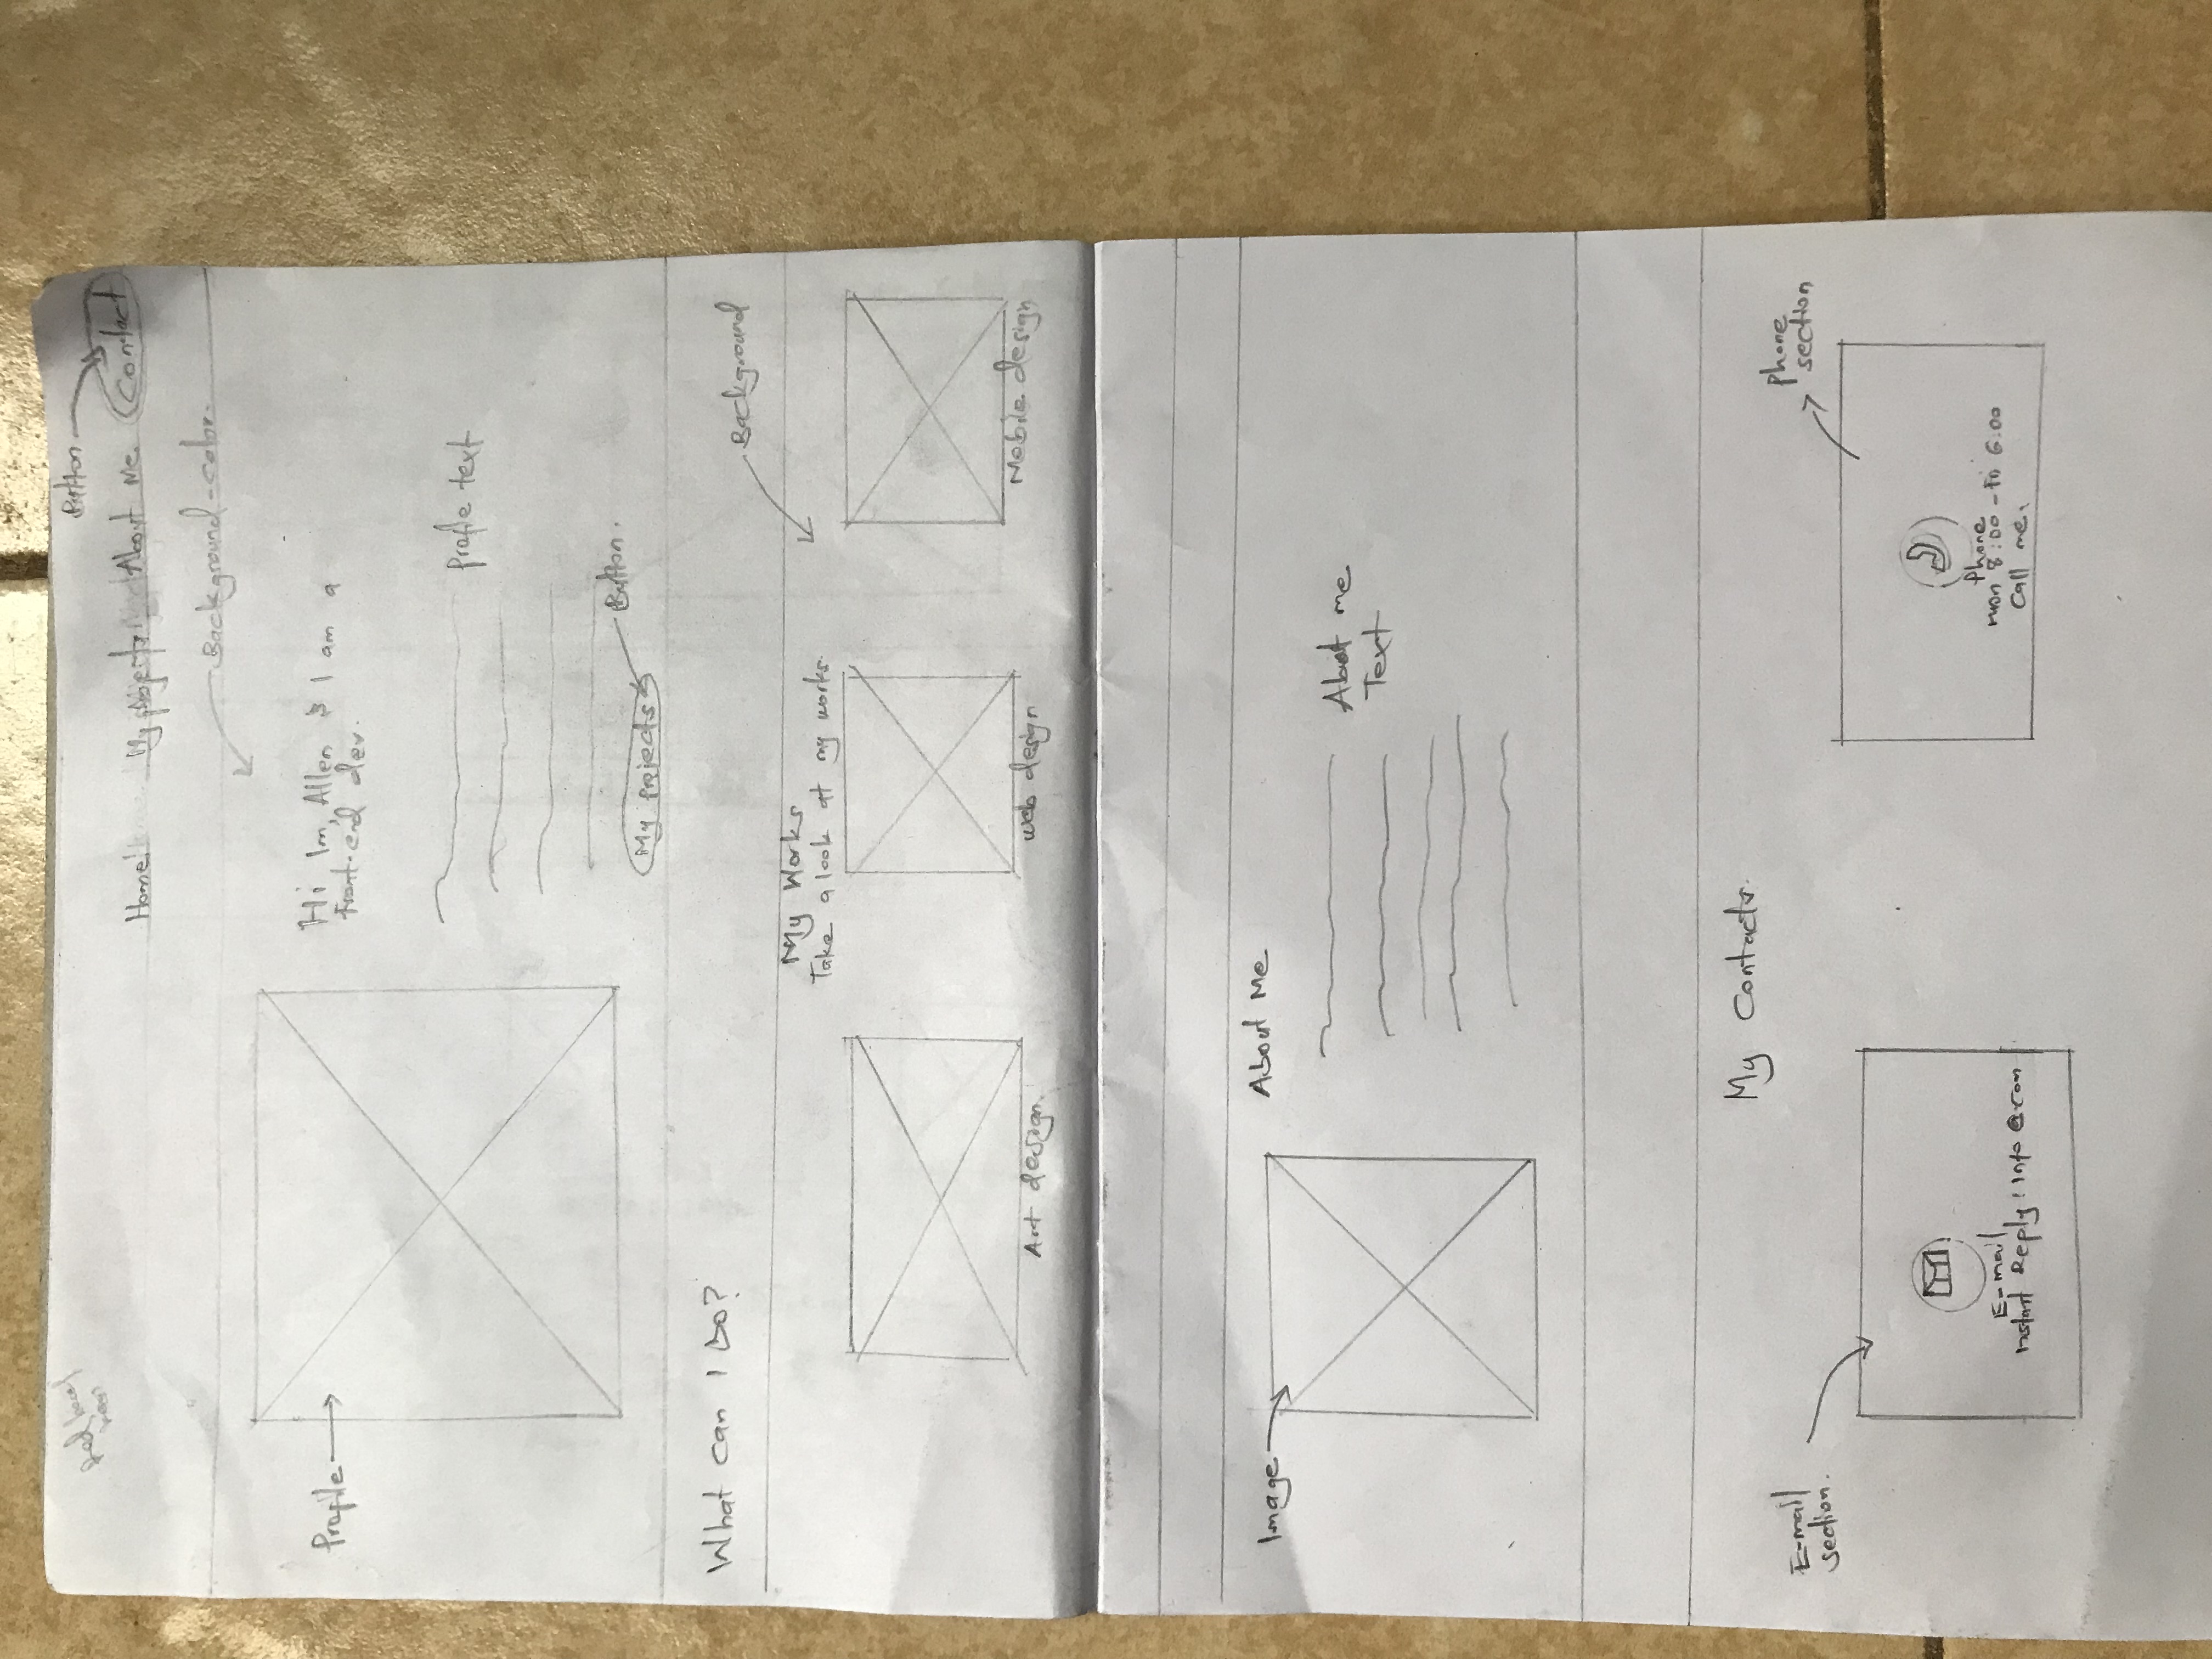 Button
Home
My projects
About Me
Contact
Background-color.
Profile
Hi Im, Allen & I am a
Front-end dev.
Profile text
Button.
My projects
What can I Do?
Background
My Works
Take a look at my works.
Art design.
web design
Mobile design
Image
About Me
About me
Text
My Contacts.
E-mail
section.
Phone
section
E-mail
Instant Reply: Info@com
Phone
Mon 8:00 - Fri 6:00
Call me.